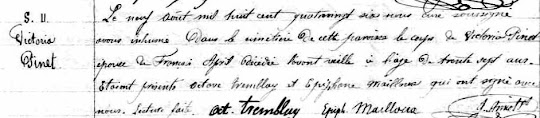 S. 11
Victoria
Pinet.
Le neuf Août mil huit cent quatrevingt six nous curé soussigné
avons inhumé dans le cimetière de cette paroisse le corps de Victoria Pinet
épouse de Francis April décédée avant veille à l'âge de trente sept ans.
Etaient présents Octave Tremblay et Epiphane Mailloux qui ont signé avec
nous. Lecture faite. Oct. Tremblay Epiph. Mailloux